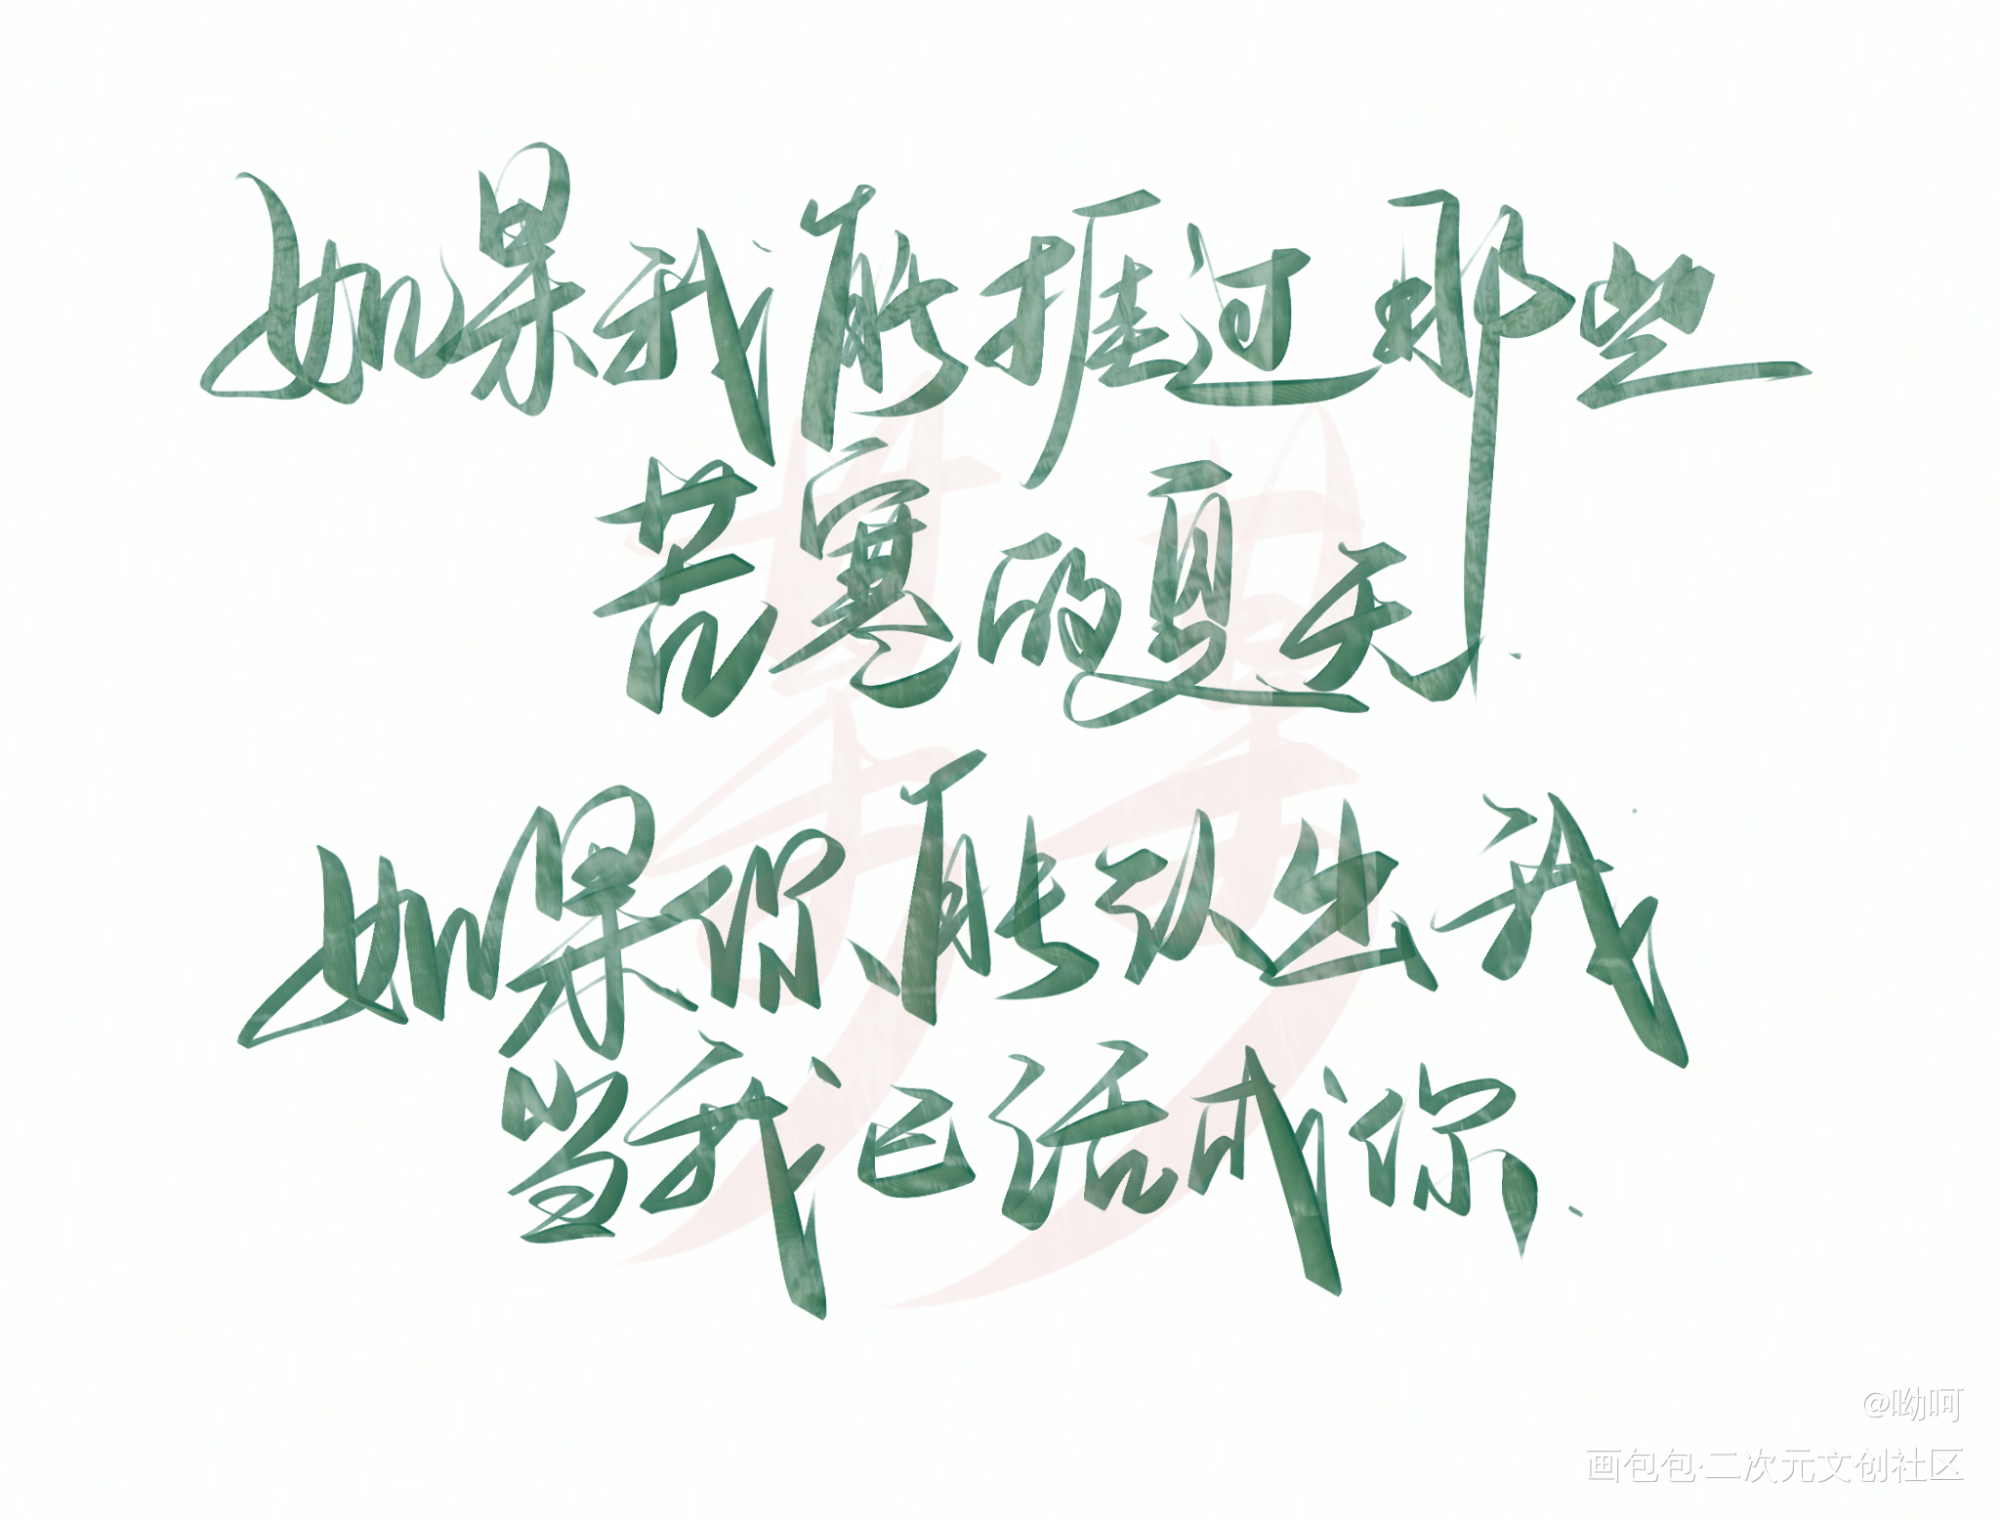 如果我能捱过那些
苦寒的夏天.
如果你能认出我
当我已活成你.
@呦呵
画包包·二次元文创社区